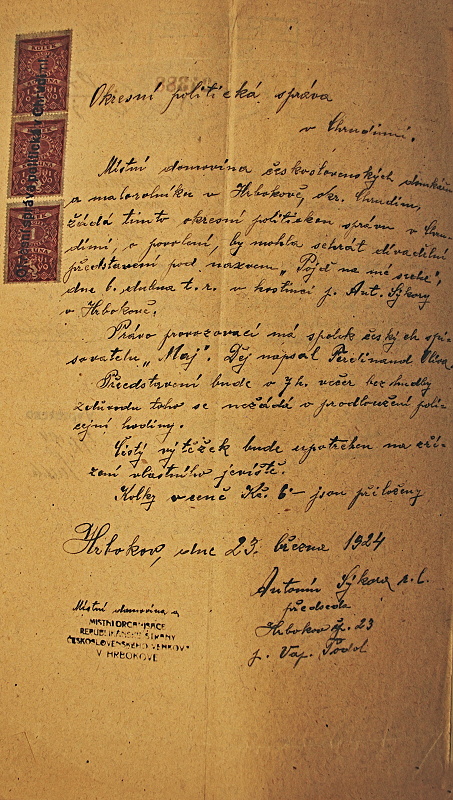 Okresní politická správa
v Chrudimi.
Místní domovina československých domkářů
a malorolníků v Hrbokově, okr. Chrudim,
žádá tímto okresní politickou správu v Chru-
dimi, o povolení, by mohla sehrát divadelní
představení pod názvem „Pojď na mé srdce",
dne 6. dubna t.r. v hostinci p. Ant. Sýkory
v Hrbokově.
Právo provozovací má spolek českých spi-
sovatelů „Maj". Děj napsal Ferdinand
Představení bude o 7 h. večer bez hudby
z důvodu toho se nežádá o prodloužení poli-
cejní hodiny.
Čistý výtěžek bude upotřeben na zří-
zení vlastního jeviště.
Kolky v ceně Kč. 6 – jsou přiloženy
Hrbokov, dne 23. března 1924
Antonín Sýkora r. l.
předseda
Hrbokov čp. 23
p. Váp. Podol
Místní domovina a
MÍSTNÍ ORGANISACE
REPUBLIKÁNSKÉ STRANY
ČESKOSLOVENSKÉHO VENKOVA
V HRBOKOVĚ